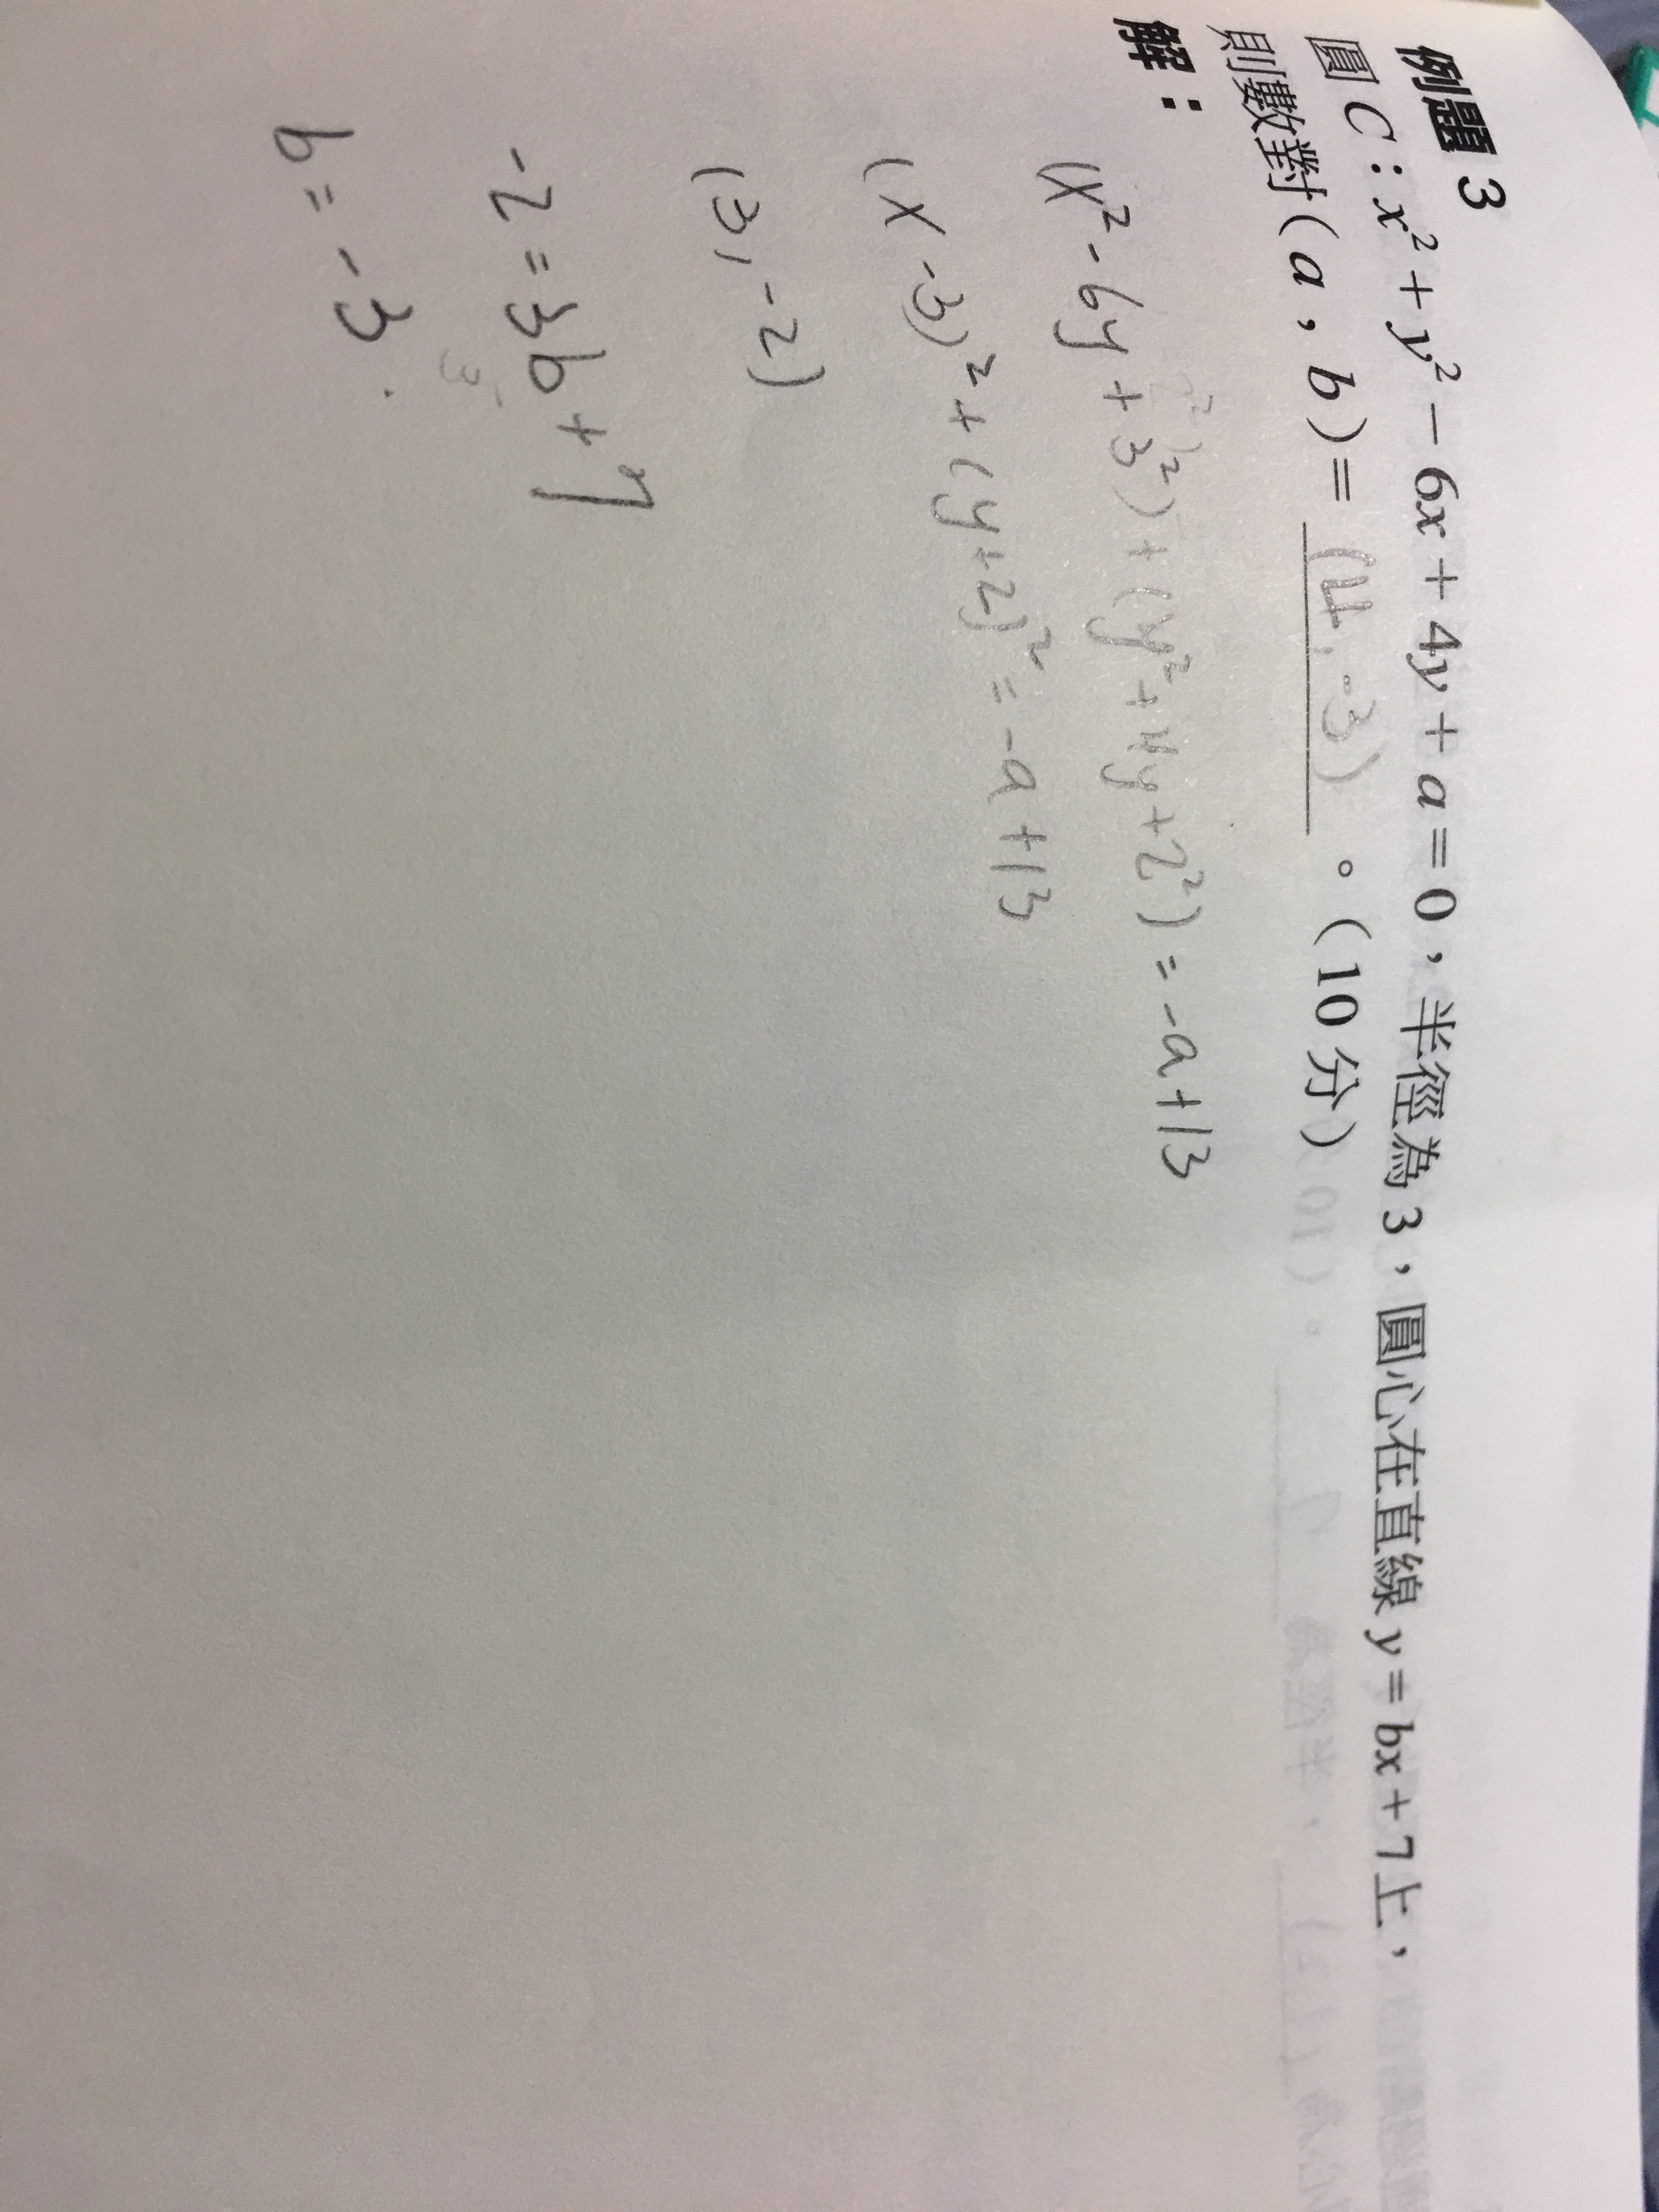 例題 3
圓 C：x² + y² − 6x + 4y + a = 0，半徑為 3，圓心在直線 y = bx + 7 上，
則數對 (a , b) = (4, -3) 。（10 分）
解：
(x² - 6y + 3²) + (y² + 4y + 2²) = -a + 13
(x - 3)² + (y + 2)² = -a + 13
(3, -2)
-2 = 3b + 7
b = -3